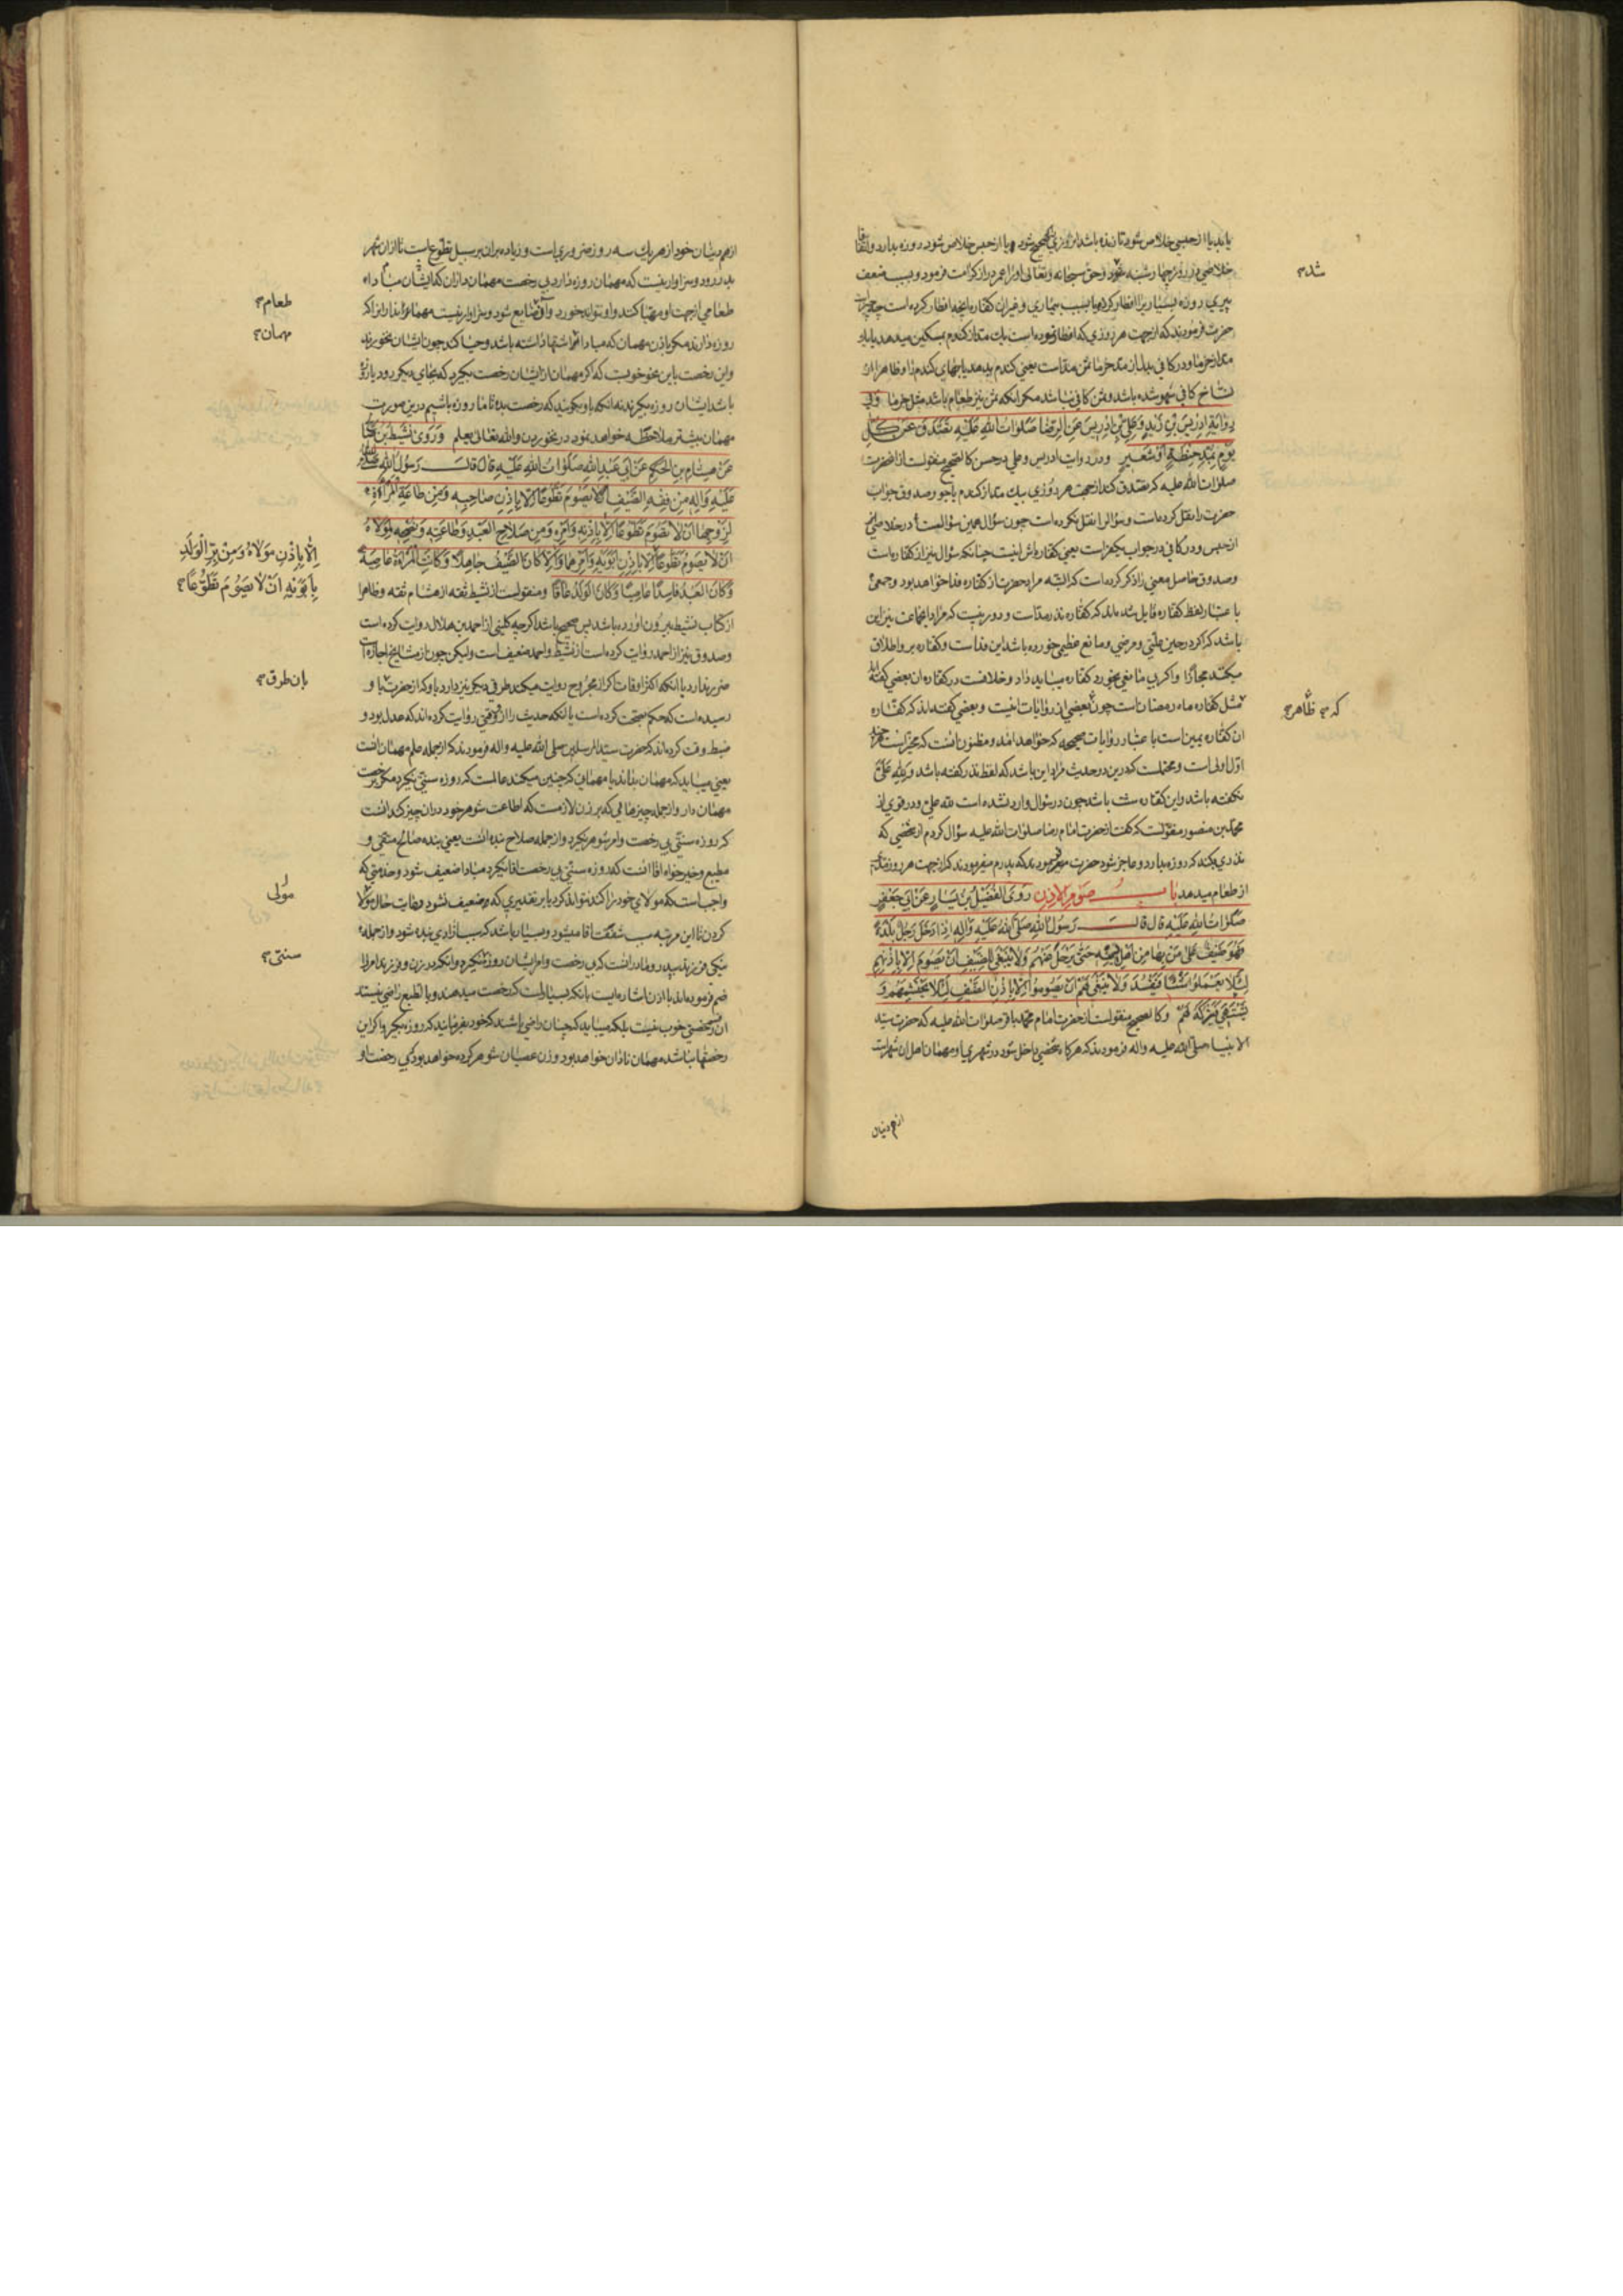 یابد یا از حبسی خلاص شود تا زنده باشد هر روزی که صحیح شود یا از حبس خلاص شود روزه بدارد و اتفاقا
خلاصی در روز چهارشنبه شود و حق سبحانه و تعالی او را عمر دراز کرامت فرمود و بسبب ضعف
پیری روزه بسیاری را افطار کرد و یا بسبب بیماری و غیر آن کفاره آنچه افطار کرده است چه چیز است
حضرت فرمودند که از جهت هر روزی که افطار نموده است یک مد از گندم بمسکین میدهد یا یک
مد از خرما و در کافی بدل از مد خرما ثمن مد است یعنی گندم بدهد یا بهای گندم را و ظاهرا از
نساخ کافی سهو شده باشد و ثمن کافی نباشد مگر آنکه ثمن نیز طعام باشد مثل خرما وفی
روایة ادریس بن زید و علی بن ادریس عن الرضا صلوات الله علیه تصدق عن کل
یوم بمد حنطة او شعیر و در روایت ادریس و علی در حسن کالصحیح منقولست از آنحضرت
صلوات الله علیه که تصدق کند از جهت هر روزی بیک مد از گندم یا جو و صدوق جواب
حضرت را نقل کرده است و سؤال را نقل نکرده است چون سؤال همین سؤالست در خلاصی
از حبس و در کافی در جواب یکفر است یعنی کفاره اش اینست چنانکه سؤال نیز از کفاره است
و صدوق حاصل معنی را ذکر کرده است که البته مراد حضرت از کفاره فدا خواهد بود و جمعی
باعتبار لفظ کفاره قایل شده اند که کفاره نذر مد است و دور نیست که مراد این جماعت نیز این
باشد که اگر در حین علتی و مرضی و مانع عظیمی خورده باشد این فداست و کفاره بر او اطلاق
میکنند مجازا و اگر بی مانعی بخورد کفاره میباید داد و خلافست در کفاره آن بعضی گفته اند
مثل کفاره ماه رمضان است چون بعضی از روایات اینست و بعضی گفته اند که کفاره
آن کفاره یمین است باعتبار روایات صحیحه که خواهد آمد و مظنون آنست که مخیر است هر چند
اول اولی است و محتملست که در این حدیث مراد این باشد که لفظ نذر گفته باشد و لله علی
نگفته باشد و این کفاره سنت باشد چون در سؤال وارد نشده است لله علی و در قوی از
محمد بن منصور منقولست که گفت از حضرت امام رضا صلوات الله علیه سؤال کردم از شخصی که
نذری بکند که روزه بدارد و عاجز شود حضرت فرمودند که پدرم میفرمودند که از جهت هر روز مدی
از طعام میدهد باب صوم الاذن روی الفضیل بن یسار عن ابی جعفر
صلوات الله علیه قال قال رسول الله صلی الله علیه واله اذا دخل رجل بلدة
فهو ضیف علی من بها من اهل دینه حتی یرحل عنهم ولا ینبغی للضیف ان یصوم الا باذنهم
لئلا یعملوا شیئا فیفسد ولا ینبغی لهم ان یصوموا الا باذن الضیف لئلا یحتشمهم و
یشتهی فیترکه لهم و کالصحیح منقولست از حضرت امام محمد باقر صلوات الله علیه که حضرت سید
الانبیاء صلی الله علیه واله فرمودند که هرگاه شخصی داخل شود در شهری او مهمان اهل آن شهر است
از هم دینان
شد
که ظاهر
از هم دینان خود از هر یک سه روز ضروریست و زیاده بر آن بر سبیل تطوع است تا از آن شهر
بدر رود و سزاوار نیست که مهمان روزه دارد بی رخصت مهمانداران که ایشان مبادا
طعامی از جهت او مهیا کنند و او نتواند خورد و آن ضایع شود و سزاوار نیست مهماندارانرا که
روزه دارند مگر باذن مهمان که مبادا اشتها داشته باشد و حیا کند چون ایشان نخورند
و این رخصت باین نحو خوبست که اگر مهمان از ایشان رخصت بگیرد که بجای دیگر رود یا روزه
باشد ایشان روزه بگیرند نه آنکه باو بگویند که رخصت بده تا ما روزه باشیم در این صورت
مهمان بیشتر ملاحظه خواهد نمود در نخوردن والله تعالی یعلم وروی نشیط بن صالح
عن هشام بن الحکم عن ابی عبد الله صلوات الله علیه قال قال رسول الله صلی الله
علیه واله من فقه الضیف ان لا یصوم تطوعا الا باذن صاحبه ومن طاعة المرأة
لزوجها ان لا تصوم تطوعا الا باذنه وامره ومن صلاح العبد وطاعته ونصحه لمولاه
ان لا یصوم تطوعا الا باذن ابویه وامرهما والا کان الضیف جاهلا وکانت المرأة عاصیة
وکان العبد فاسدا عاصیا وکان الولد عاقا و منقولست از نشیط ثقه از هشام ثقه و ظاهرا
از کتاب نشیط بیرون آورده باشد پس صحیح باشد اگر چه کلینی از احمد بن هلال روایت کرده است
و صدوق نیز از احمد روایت کرده است از نشیط و احمد ضعیف است ولیکن چون از مشایخ اجازه است
ضرر ندارد با آنکه اکثر اوقات که از مجروح روایت میکند طرق دیگر نیز دارد یا او که از حضرت باو
رسیده است که حکم بصحت کرده است یا آنکه حدیث را از او وقتی روایت کرده اند که عدل بود و
ضبط وقت کرده اند که حضرت سید المرسلین صلی الله علیه واله فرمودند که از جمله علم مهمان آنست
یعنی میباید که مهمان بداند یا مهمانی که چنین میکند عالمست که روزه سنتی نگیرد مگر برخصت
مهمان دار و از جمله چیزهائی که بر زن لازمست که اطاعت شوهر خود در آن چیز کند آنست
که روزه سنتی بی رخصت و امر شوهر نگیرد و از جمله صلاح بنده آنست یعنی بنده صالح متقی و
مطیع و خیر خواه آقا آنست که روزه سنتی بی رخصت آقا نگیرد مبادا ضعیف شود و خدمتی که
واجب است که مولای خود را کند نتواند کرد یا بر تقدیری که ضعیف نشود رعایت حال مولا
کردن تا این مرتبه سبب شفقت آقا میشود و بسیار باشد که سبب آزادی بنده شود و از جمله
نیکی فرزند بپدر و مادر آنست که بی رخصت و امر ایشان روزه نگیرد و آنکه در زن و فرزند امر را
ضم فرموده اند با اذن اشاره ایست بآنکه بسیار است که رخصت میدهند و بالطبع راضی نیستند
آن رخصتی خوب نیست بلکه میباید که چنان راضی باشند که خود بفرمایند که روزه بگیر و اگر این
رخصتها نباشد مهمان نادان خواهد بود و زن عصیان شوهر کرده خواهد بود که بی رخصت او
طعام
مهمان
الا باذن مولاه ومن بر الولد
بابویه ان لا یصوم تطوعا
بان طرق
مولی
سنتی